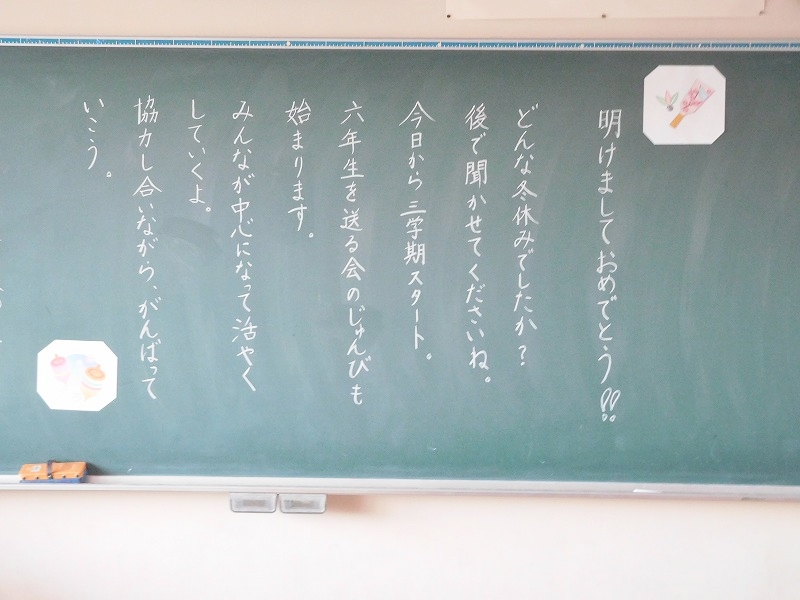 明けましておめでとう!!
どんな冬休みでしたか?
後で聞かせてくださいね。
今日から三学期スタート。
六年生を送る会のじゅんびも
始まります。
みんなが中心になって活やく
していくよ。
協力し合いながら、がんばって
いこう。